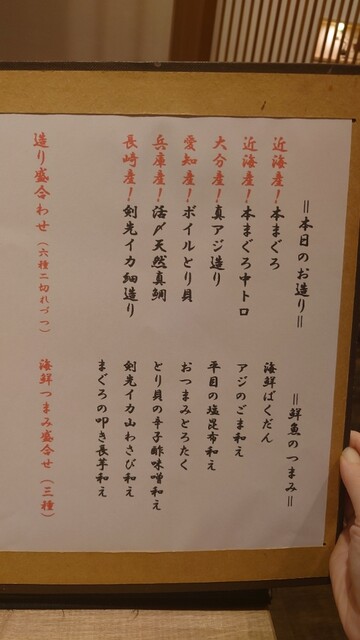 ＝本日のお造り＝
近海産！本まぐろ
近海産！本まぐろ中トロ
大分産！真アジ造り
愛知産！ボイルとり貝
兵庫産！活〆天然真鯛
長崎産！剣先イカ細造り
造り盛合わせ（六種二切れづつ）
＝鮮魚のつまみ＝
海鮮ばくだん
アジのごま和え
平目の塩昆布和え
おつまみとろたく
とり貝の辛子酢味噌和え
剣先イカ山わさび和え
まぐろの叩き長芋和え
海鮮つまみ盛合せ（三種）